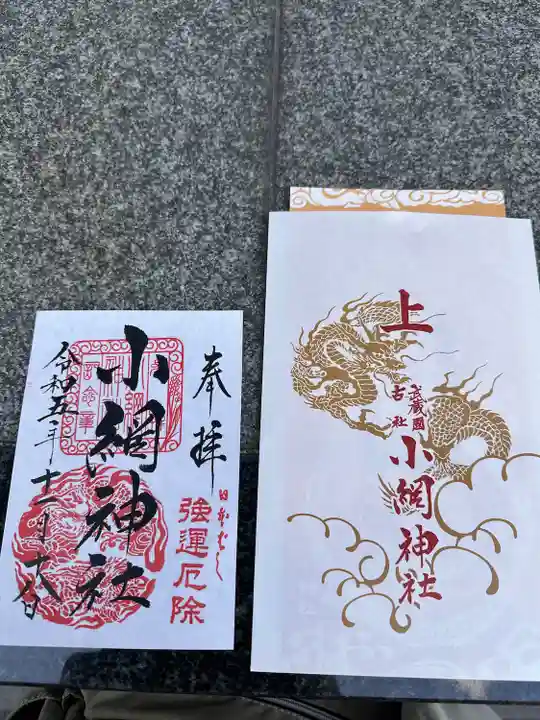 奉拝
日本ばし
強運厄除
小網神社
令和五年十一月十八日
上
武蔵國
古社
小網神社